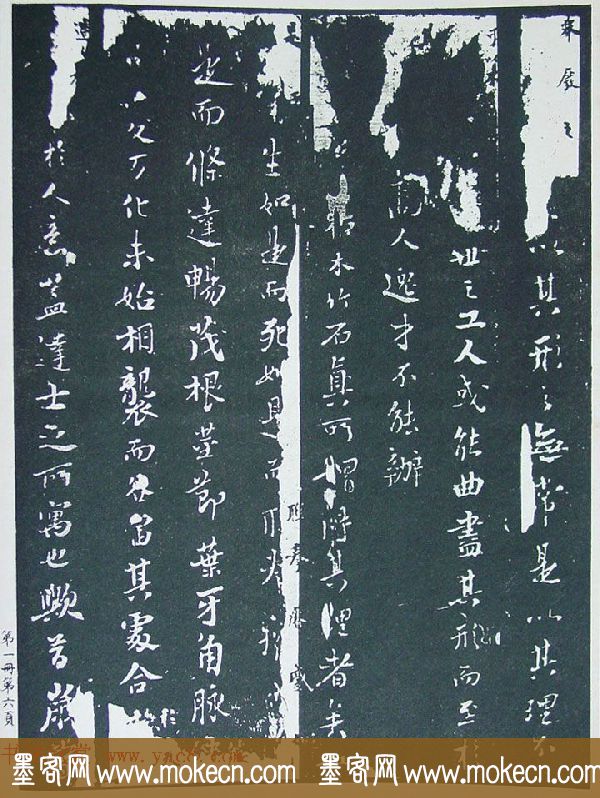 以其形之無常是以其理不
世之工人或能曲盡其形而至於
高人逸才不能辦
枯木竹石真可謂得其理者矣
生如是而死如是而
是而條達暢茂根莖節葉牙角脈
變万化未始相襲而各當其處合於
於人意蓋達士之所寓也歟昔歲
第一冊第六頁
墨客网 www.mokecn.com 墨客网 www.mokecn.com